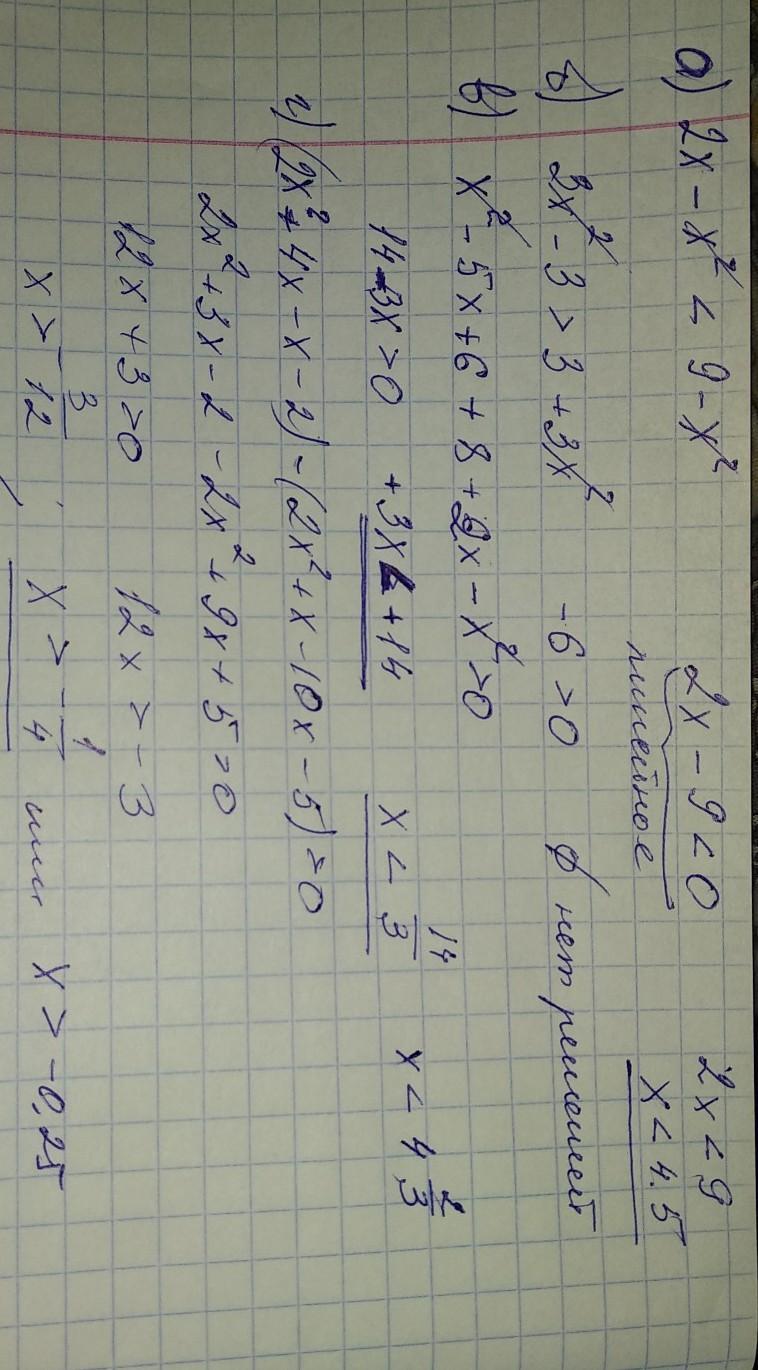 а) 2x - x² < 9 - x² 2x - 9 < 0 2x < 9
линейное x < 4.5
б) 3x² - 3 > 3 + 3x² -6 > 0 ∅ нет решений
в) x² - 5x + 6 + 8 + 2x - x² > 0
14 - 3x > 0 +3x < +14 x < 14/3 x < 4 2/3
г) (2x² + 4x - x - 2) - (2x² + x - 10x - 5) > 0
2x² + 3x - 2 - 2x² + 9x + 5 > 0
12x + 3 > 0 12x > -3
x > -3/12 ; x > -1/4 или x > -0,25